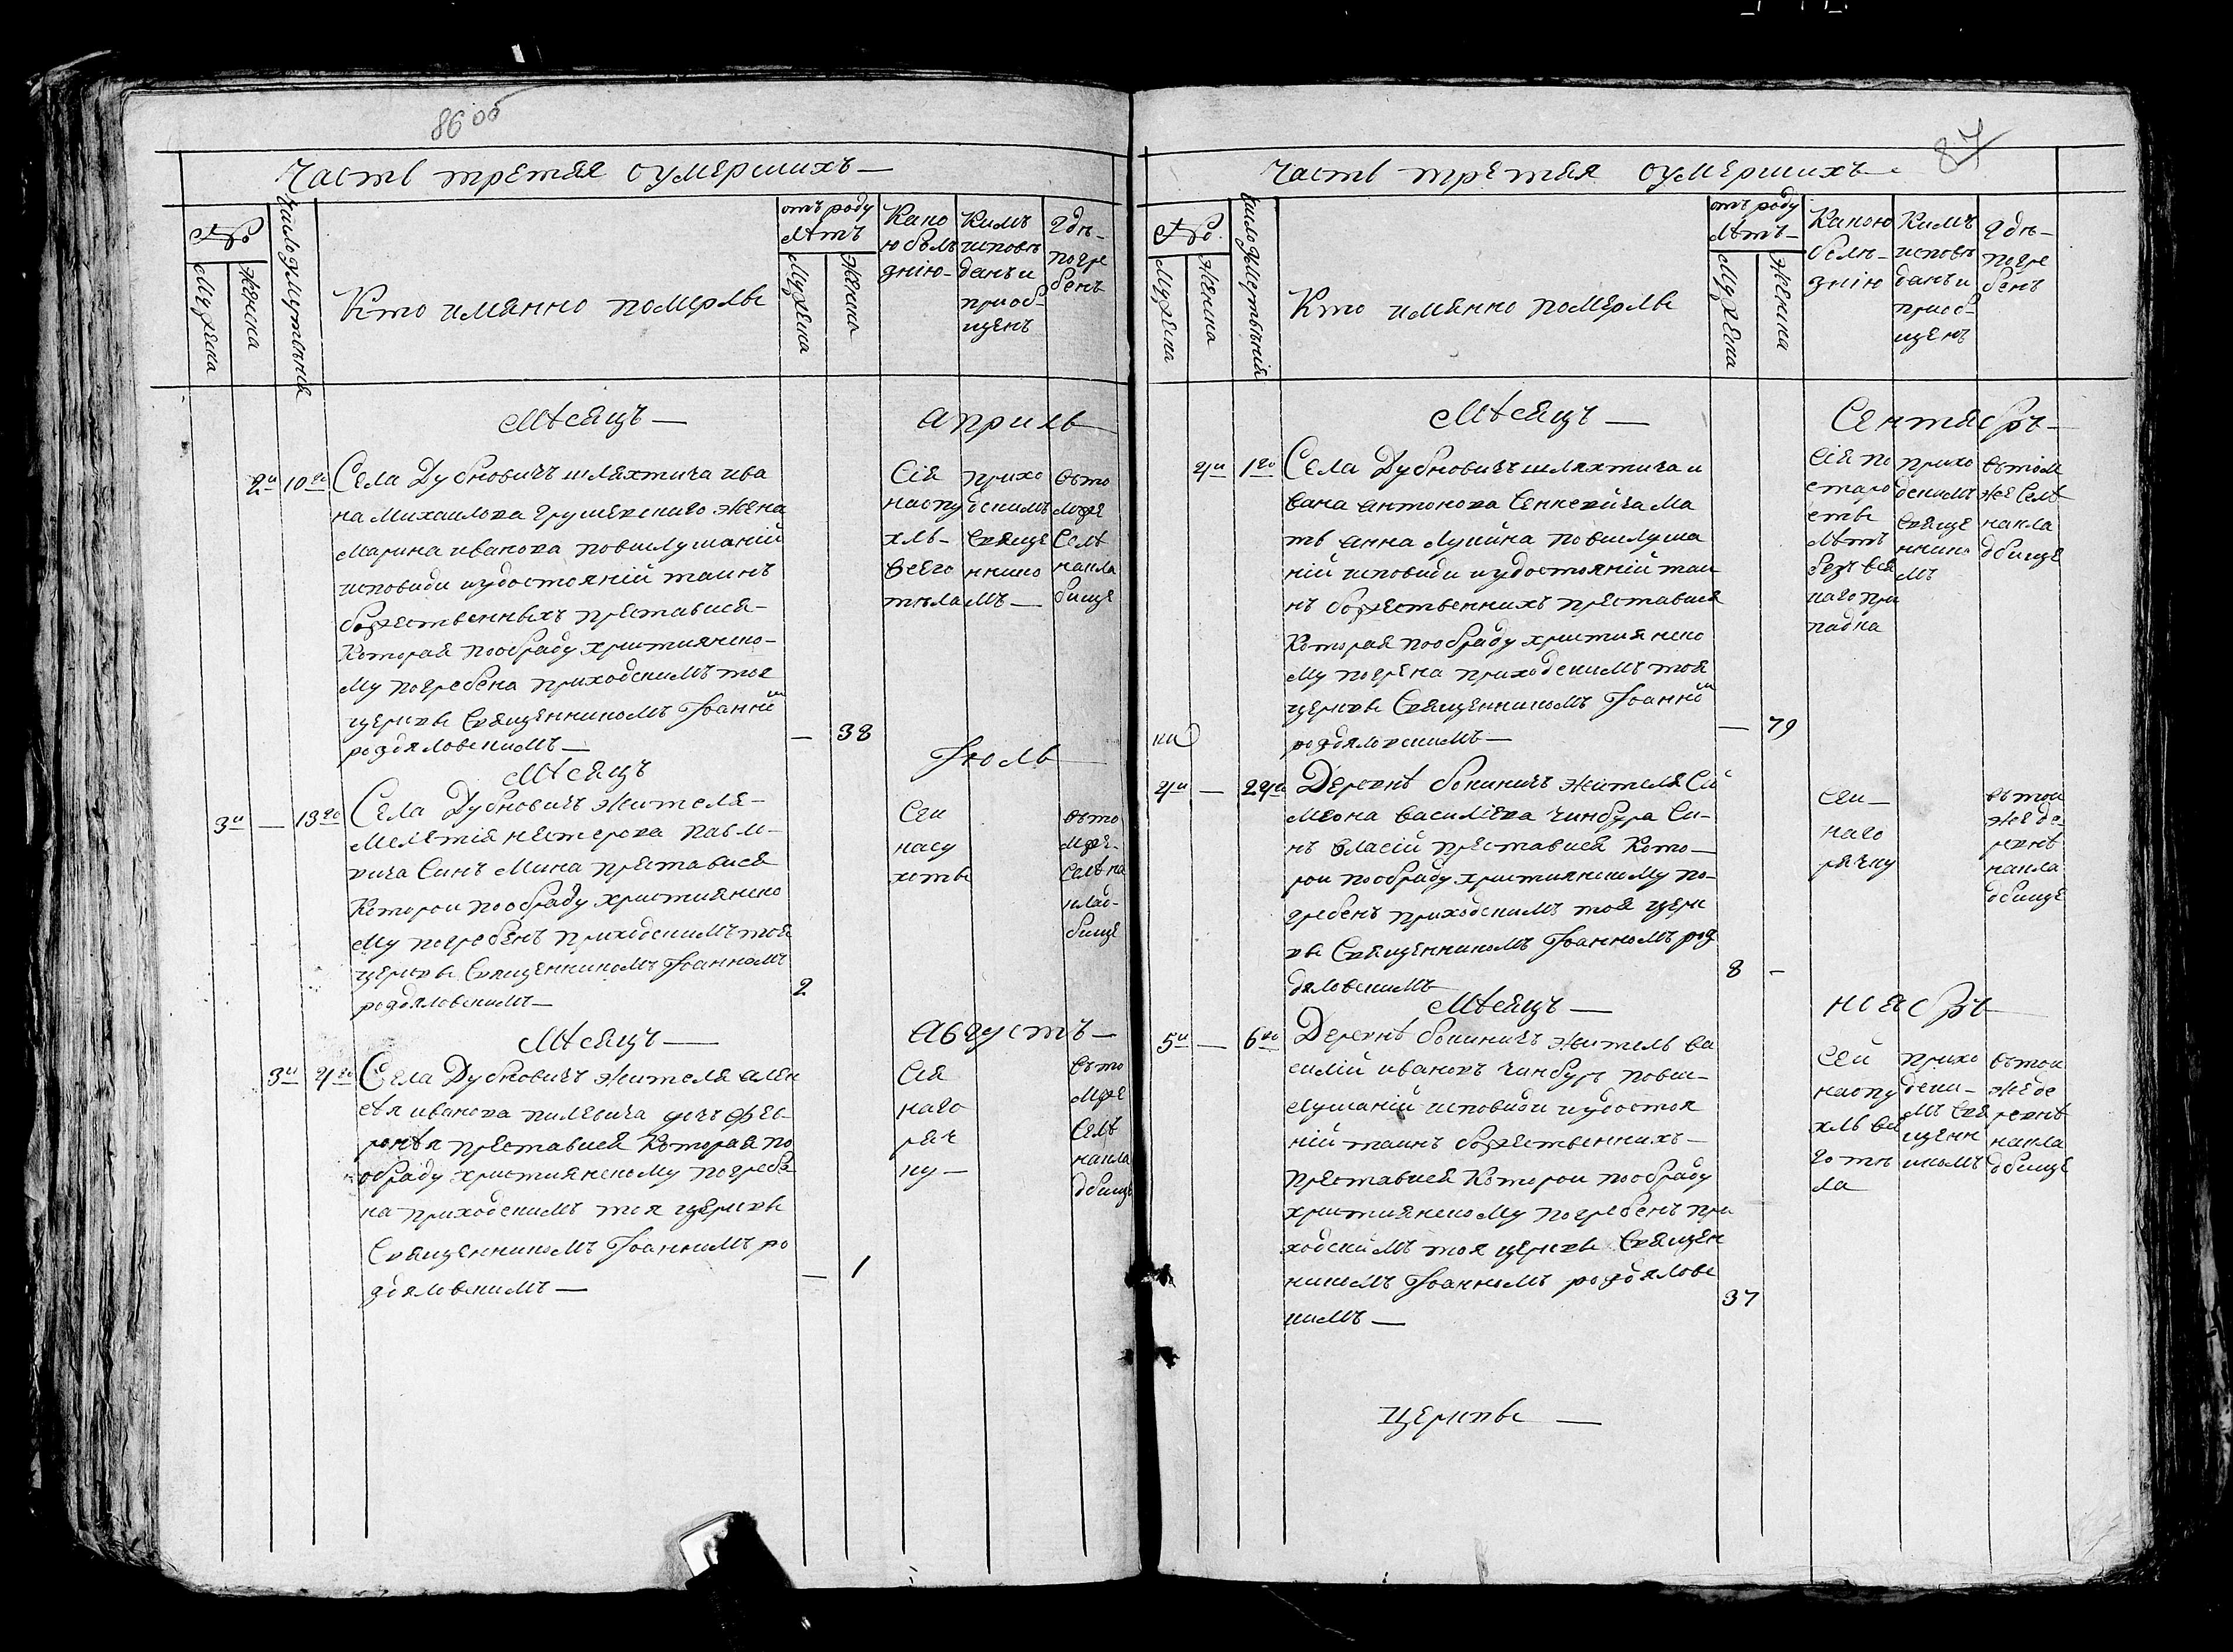 86 об
Часть третяя оумершихъ —
№
Мужеска
Женска
Число умертвия
Кто имянно померлъ
отъ роду лѣтъ
Мужеска
Женска
Како
ю болѣ
знію —
Кимъ
исповѣ
данъ и
приоб-
щенъ
Гдѣ-
погре
бенъ
Мѣсяцъ — априль
2и 10го Села Дубновичъ шляхтича ива
на Михаилова Грушевского жена
Марина иванова повислушаній
исповиди иудостояній таинъ
божественныхъ преставися —
Которая пообряду християнско-
му погребена приходскимъ тоя
церкви Священникомъ Іоанни
роздяловскимъ —
— 38
Сія
наопу
хль-
всего
тѣла
прихо
дскимъ
Свяще
ннико
мъ —
въто
мже
Селѣ
накла
бище
Мѣсяцъ Іюль
3и — 13го Села Дубновичъ жителя —
Мелетія нестерова Павло-
вича Синъ Мина преставися
Которои пообряду християнско
му погребенъ приходскимъ тоя
церкви Священникомъ Іоанномъ
роздяловскимъ —
2
Сеи
насу
хоты
въто
мже-
Селѣ на
клад-
бище
Мѣсяцъ — Августъ —
3и 4го Села Дубновичъ жителя алек
сѣя иванова пилевича дочъ Фев-
ронѣя преставися Которая по
обряду християнскому погребе
на приходскимъ тоя церкви
Священникомъ Іоанномъ ро
здяловскимъ —
— 1
Сія
наго
ряч
ку —
въто
мже
Селѣ
накла
дбище
87
Часть третяя оумершихъ —
№
Мужеска
Женска
Число умертвѣнія
Кто имянно померлъ
отъ роду
лѣтъ —
Мужеска
Женска
Какою
болѣ-
знію
Кимъ
исповѣ
данъ и
приоб-
щенъ
Гдѣ —
погре
бенъ
Мѣсяцъ — Сентябръ —
4и 1го Села Дубновичъ шляхтича и
вана антонова Сенкевича Ма
ть анна Лукина повислуша
ній исповиди иудостояній таи
нъ божественнихъ преставися
Которая пообряду християнско
му погрена приходскимъ тоя
церкви Священникомъ Іоанно
роздяловскимъ —
— 79
Сія по
старо
сти
лѣтъ
безъ вся
каго при
падка
прихо
дскимъ
Свяще
ннико
мъ
вътом
же Селѣ
накла
дбище
4и — 24и Деревнѣ бокиничъ жителя Си
меона василіева чинбура Си-
нъ власій преставися Кото —
рои пообряду християнскому по-
гребенъ приходскимъ тоя церк
ви Священникомъ Іоанномъ роз
дяловскимъ
8 —
Сеи —
наго
рячку
въ тои
же де-
ревнѣ
накла
дбище
Мѣсяцъ — ноябръ
5и — 6го Деревнѣ бокиничъ житель ва
силій ивановъ чинбуръ повис-
лушаній исповиди иудостоя
ній таинъ божественнихъ —
Преставися Которои пообряду
християнскому погребенъ при
ходскимъ тоя церкви Священ
никомъ Іоанномъ роздялове
кимъ —
37
Сей
наопу
хль вс
го тѣ
ла
прихо
дски-
мъ свя
щенн
икомъ
вътои
же де
ревнѣ
накла
дбище
Церкви —